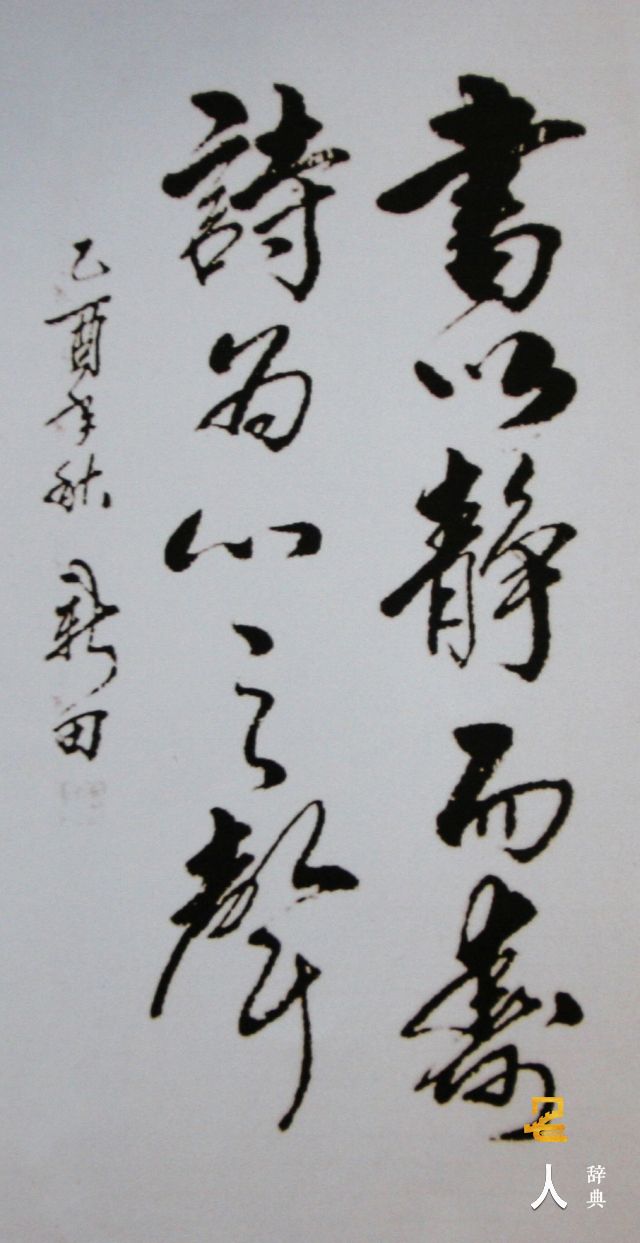 書以靜而壽
詩為心之聲
乙酉年秋 新田
名人辞典